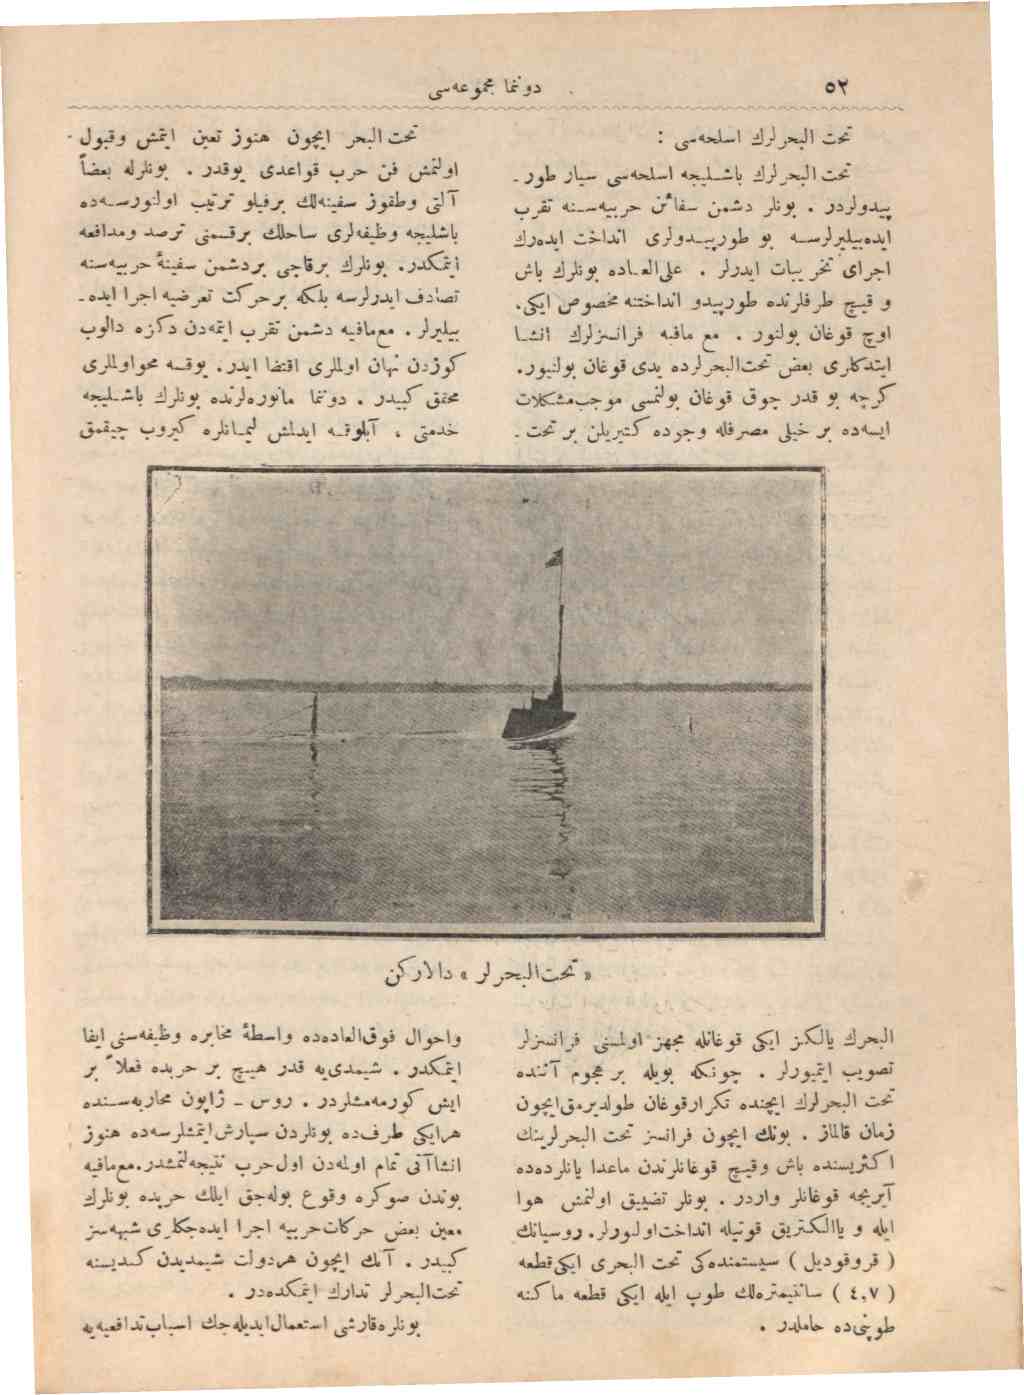 ٥٢
دوننما مجموعه‌سی
تحت البحرلرك اسلحه‌سی :
تحت البحرلرك باشلیجه اسلحه‌سی سیار طور-
پیدولردر . بونلر دشمن سفائن حربیه‌سنه تقرب
ایده‌بیلیرلرسه بو طورپیدولری انداخت ایده‌رك
اجرای تخریبات ایدرلر . علی‌العاده بونلرك باش
و قیچ طرفلرنده طورپیدو انداختنه مخصوص ایکی،
اوچ قوغان بولنور . مع مافیه فرانسزلرك انشا
ایتدکلری بعض تحت‌البحرلرده یدی قوغان بولنیور.
کرچه بو قدر چوق قوغان بولنمسی موجب‌مشکلات
ایسه‌ده بر خیلی مصرفله وجوده کتیریلن بر تحت-
البحرك یالکز ایکی قوغانله مجهز اولمسنی فرانسزلر
تصویب ایتمیورلر . چونکه بویله بر هجوم آننده
تحت البحرلرك ایچنده تکرارقوغان طولدیرمق‌ایچون
زمان قالماز . بونك ایچون فرانسز تحت البحرلرینك
اکثریسنده باش وقیچ قوغانلرندن ماعدا یانلرده‌ده
آیریجه قوغانلر واردر . بونلر تضییق اولنمش هوا
ایله و یاالکتریق قوتیله انداخت‌اولنورلر. روسیانك
( قروقودیل ) سیستمنده‌کی تحت البحری ایکی‌قطعه
( ٤,٧ ) سانتیمتره‌لك طوپ ایله ایکی قطعه ماکنه
طوپنی‌ده حاملدر .
تحت البحر ایچون هنوز تعین ایتمش وقبول
اولنمش فن حرب قواعدی یوقدر . بونلرله بعضاً
آلتی وطقوز سفینه‌لك برفیلو ترتیب اولنورسه‌ده
باشلیجه وظیفه‌لری ساحلك برقسمنی ترصد ومدافعه
ایتمکدر. بونلرك برقاجی بردشمن سفینهٔ حربیه‌سنه
تصادف ایدرلرسه بلکه برحرکت تعرضیه اجرا ایده-
بیلیرلر . مع‌مافیه دشمن تقرب ایتمه‌دن دکزه دالوب
کوزدن نهان اولملری اقتضا ایدر. یوقسه محواولملری
محقق کبیدر . دوننما مانوره‌لرنده بونلرك باشلیجه
خدمتی ، آبلوقه ایدلمش لیمانلره کیروب چیقمق
واحوال فوق‌العاده‌ده واسطهٔ مخابره وظیفه‌سنی ایفا
ایتمکدر . شیمدی‌یه قدر هیچ بر حربده فعلاً بر
ایش کورمه‌مشلردر . روس - ژاپون محاربه‌سنده
هرایکی طرف‌ده بونلردن سپارش‌ایتمشلرسه‌ده هنوز
انشاآتی تمام اولمه‌دن اول‌حرب نتیجه‌لنمشدر.مع‌مافیه
بوندن صوکره وقوع بوله‌جق ایلك حربده بونلرك
معین بعض حرکات‌حربیه اجرا ایده‌جکلری شبهه‌سز
کبیدر . آنك ایچون هردولت شیمدیدن کندیسنه
تحت‌البحرلر تدارك ایتمکده‌در .
بونلره‌قارشی استعمال‌ایدیله‌جك اسباب‌تدافعیه‌یه
« تحت‌البحرلر » دالارکن